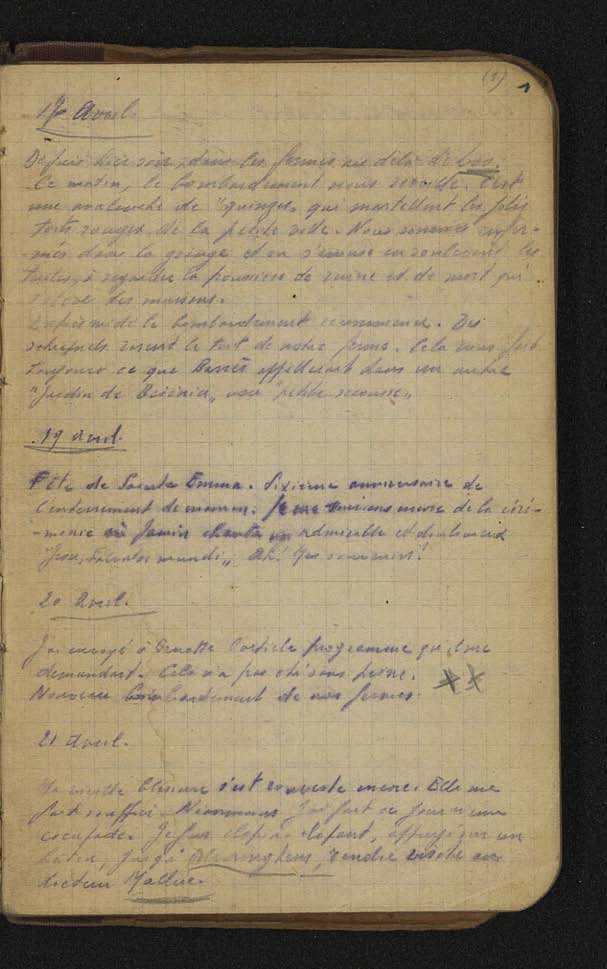 (1) 1
17 Avril.
Depuis hier soir, dans les fermes au delà de
Ce matin, le bombardement nous réveille. C'est
une avalanche de "quinze" qui martellent les
toits rouges de la petite ville. Nous sommes enfer-
-més dans la grange et on s'amuse en soulevant les
tuiles, à regarder la poussière de ruine et de mort qui
s'élève des maisons.
Après midi le bombardement recommence. Des
schrapnels visent le toit de notre ferme. Cela nous fait
toujours ce que Barrès appellerait dans un autre
"Jardin de Bérénice" une "petite secousse"
19 avril.
Fête de Sainte Emma. Sixième anniversaire de
l'enterrement de maman. Je me souviens encore de la céré-
-monie où Jamin chanta un admirable et douloureux
"Jesu, Salvator mundi". Ah! Ces souvenirs!
20 Avril.
J'ai envoyé à l'article programme qu'il me
demandait. Cela n'a pas été sans peine.
Nouveau bombardement de nos fermes.
21 Avril.
Ma vieille blessure s'est rouverte encore. Elle me
fait souffrir. Néanmoins j'ai fait ce jour une
escapade. Je fus clopin-clopant, appuyé sur un
bâton, jusqu'à rendre visite au
docteur